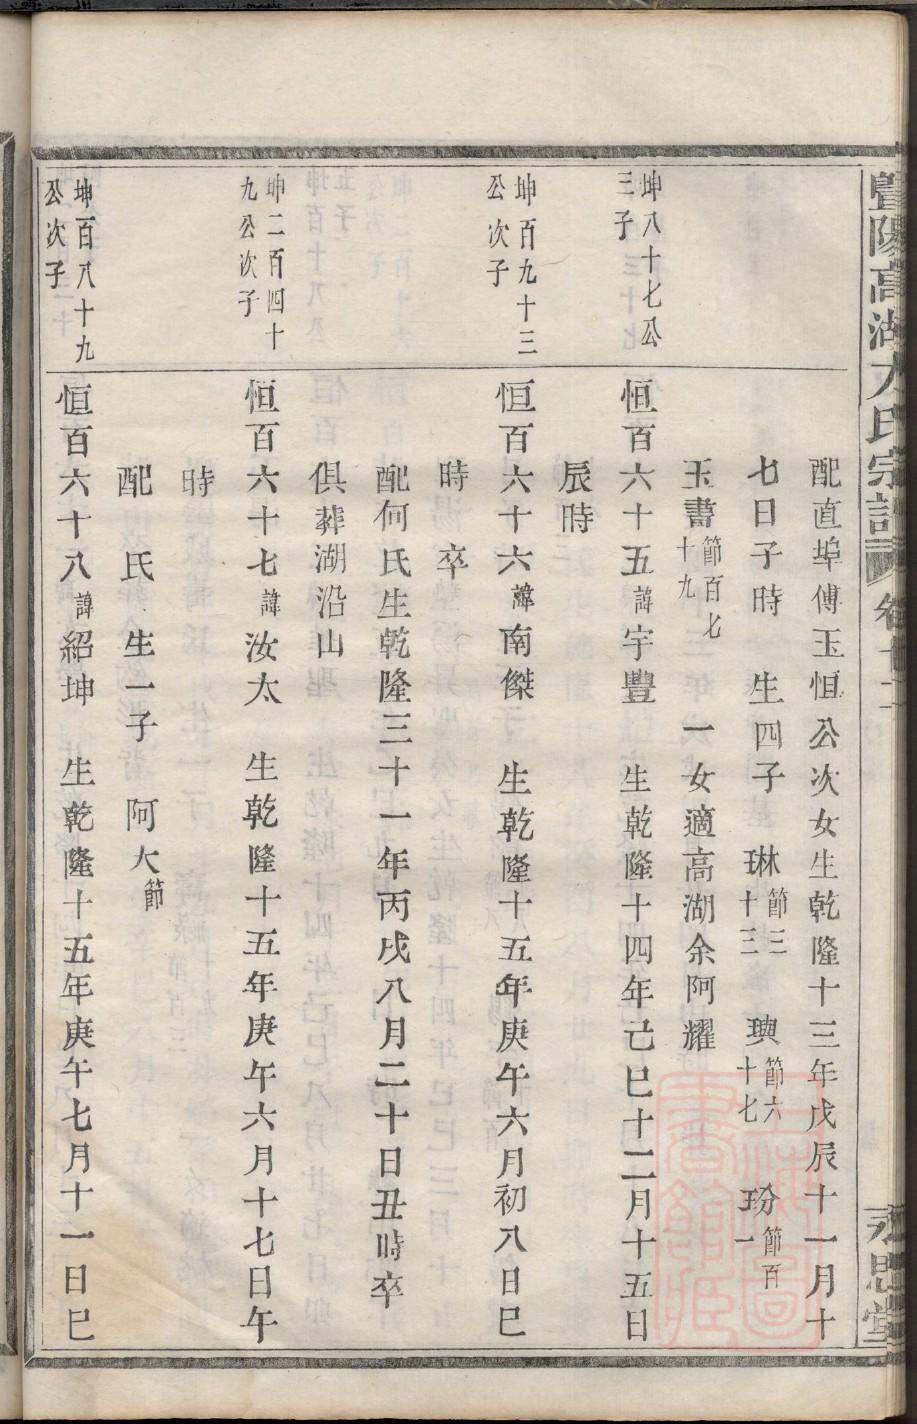 暨陽高湖方氏宗譜 卷十二 永思堂
配直埠傅玉恒公次女生乾隆十三年戊辰十一月十
七日子時 生四子 琳節三十三 璵節六十七 玢節百一
玉書節百七十九 一女適高湖余阿耀
坤八十七公三子
恒百六十五諱宇豐 生乾隆十四年己巳十二月十五日
辰時
坤百九十三公次子
恒百六十六諱南傑 生乾隆十五年庚午六月初八日巳
時 卒
配何氏生乾隆三十一年丙戌八月二十日丑時卒
俱葬湖沿山
坤二百四十九公次子
恒百六十七諱汝太 生乾隆十五年庚午六月十七日午
時
配 氏 生一子 阿大節
坤百八十九公次子
恒百六十八諱紹坤 生乾隆十五年庚午七月十一日巳